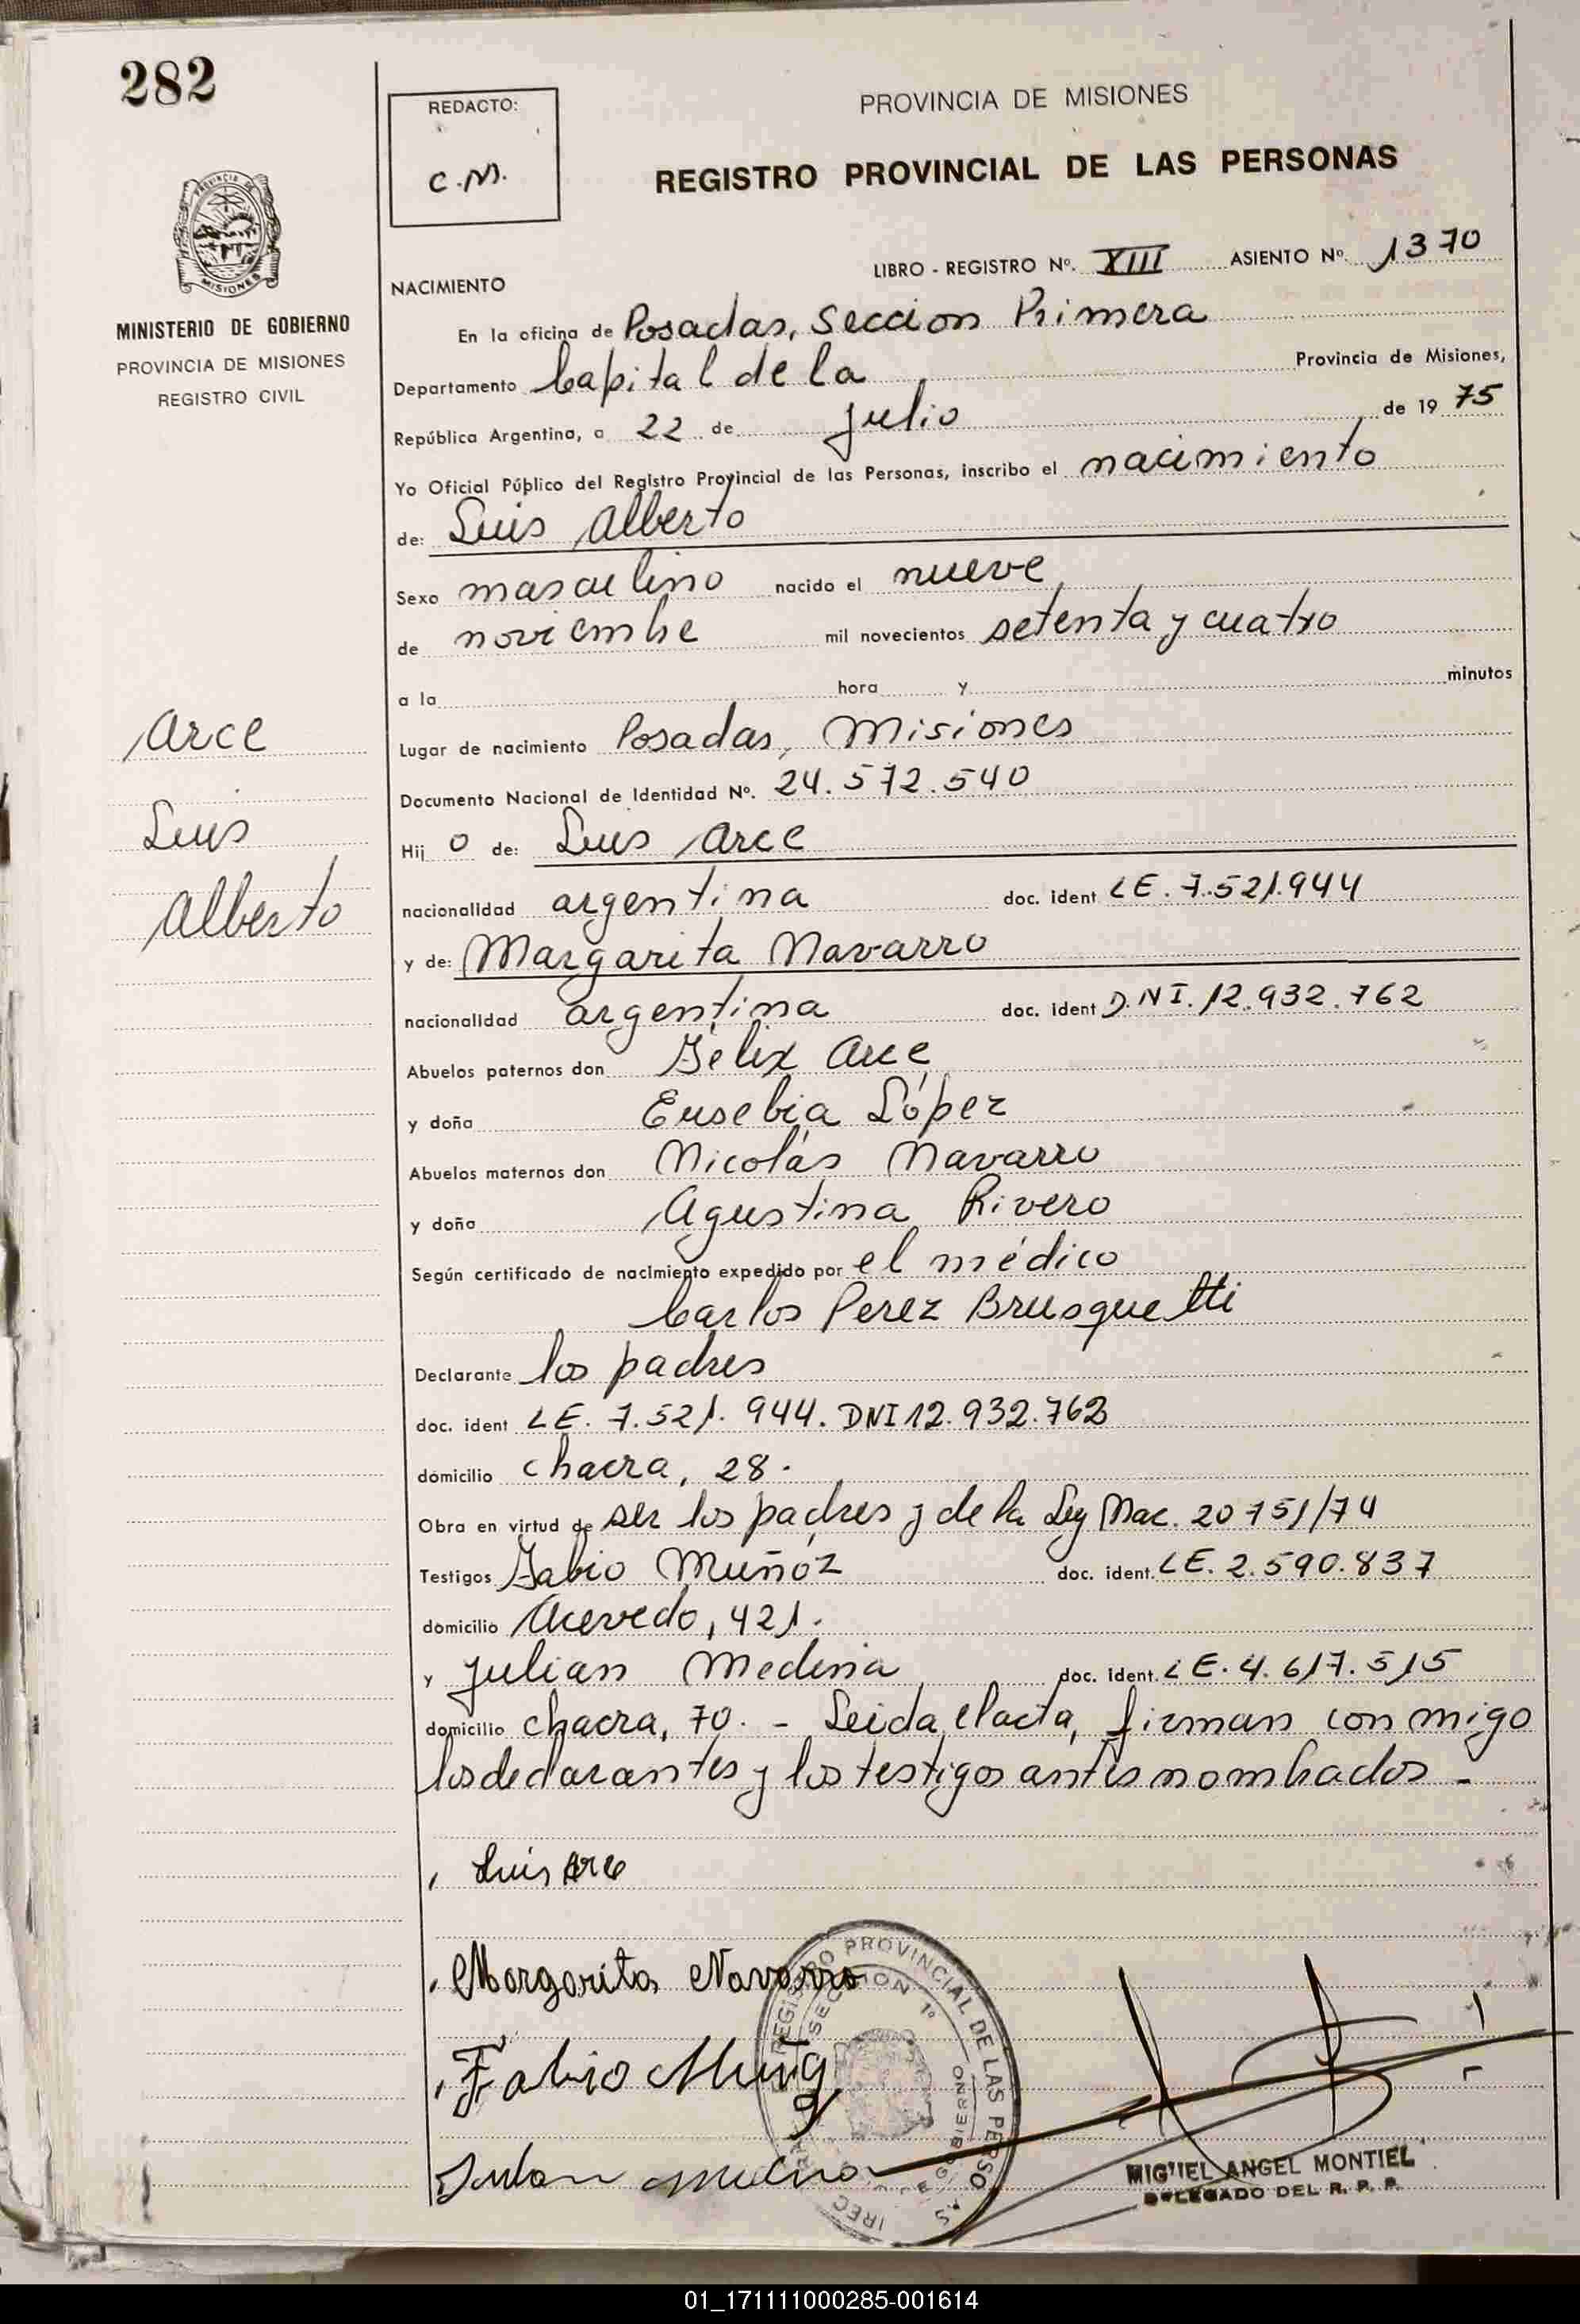 282
REDACTO:
C.M.
PROVINCIA DE MISIONES
REGISTRO PROVINCIAL DE LAS PERSONAS
PROVINCIA DE
MISIONES
MINISTERIO DE GOBIERNO
PROVINCIA DE MISIONES
REGISTRO CIVIL
LIBRO - REGISTRO Nº. XIII ASIENTO Nº. 1370
NACIMIENTO
En la oficina de Posadas, Seccion Primera
Departamento Capital de la Provincia de Misiones,
República Argentina, a 22 de julio de 19 75
Yo Oficial Público del Registro Provincial de las Personas, inscribo el nacimiento
de: Luis Alberto
Sexo masculino nacido el nueve
de noviembre mil novecientos setenta y cuatro
a la hora y minutos
Arce
Luis
Alberto
Lugar de nacimiento Posadas, Misiones
Documento Nacional de Identidad Nº. 24.572.540
Hij o de: Luis Arce
nacionalidad argentina doc. ident LE. 7.521.944
y de: Margarita Navarro
nacionalidad argentina doc. ident D.N I. 12.932.762
Abuelos paternos don Félix Arce
y doña Eusebia López
Abuelos maternos don Nicolás Navarro
y doña Agustina Rivero
Según certificado de nacimiento expedido por el médico
Carlos Perez Brusquetti
Declarante los padres
doc. ident LE. 7.521.944. DNI 12.932.762
domicilio chacra, 28.
Obra en virtud de ser los padres y de la Ley Nac. 20751/74
Testigos Fabio Muñóz doc. ident. LE. 2.590.837
domicilio Acevedo, 421.
y Julian Medina doc. ident. LE. 4.617.515
domicilio chacra, 70. - Leida el acta, firman con migo
los declarantes y los testigos antes nombrados -
Luis Arce
Margarita Navarro
Fabio Muñoz
REGISTRO PROVINCIAL DE LAS PERSO
SECCION 1º
GOBIERNO
MIGUEL ANGEL MONTIEL
DELEGADO DEL R. P. P.
01_171111000285-001614